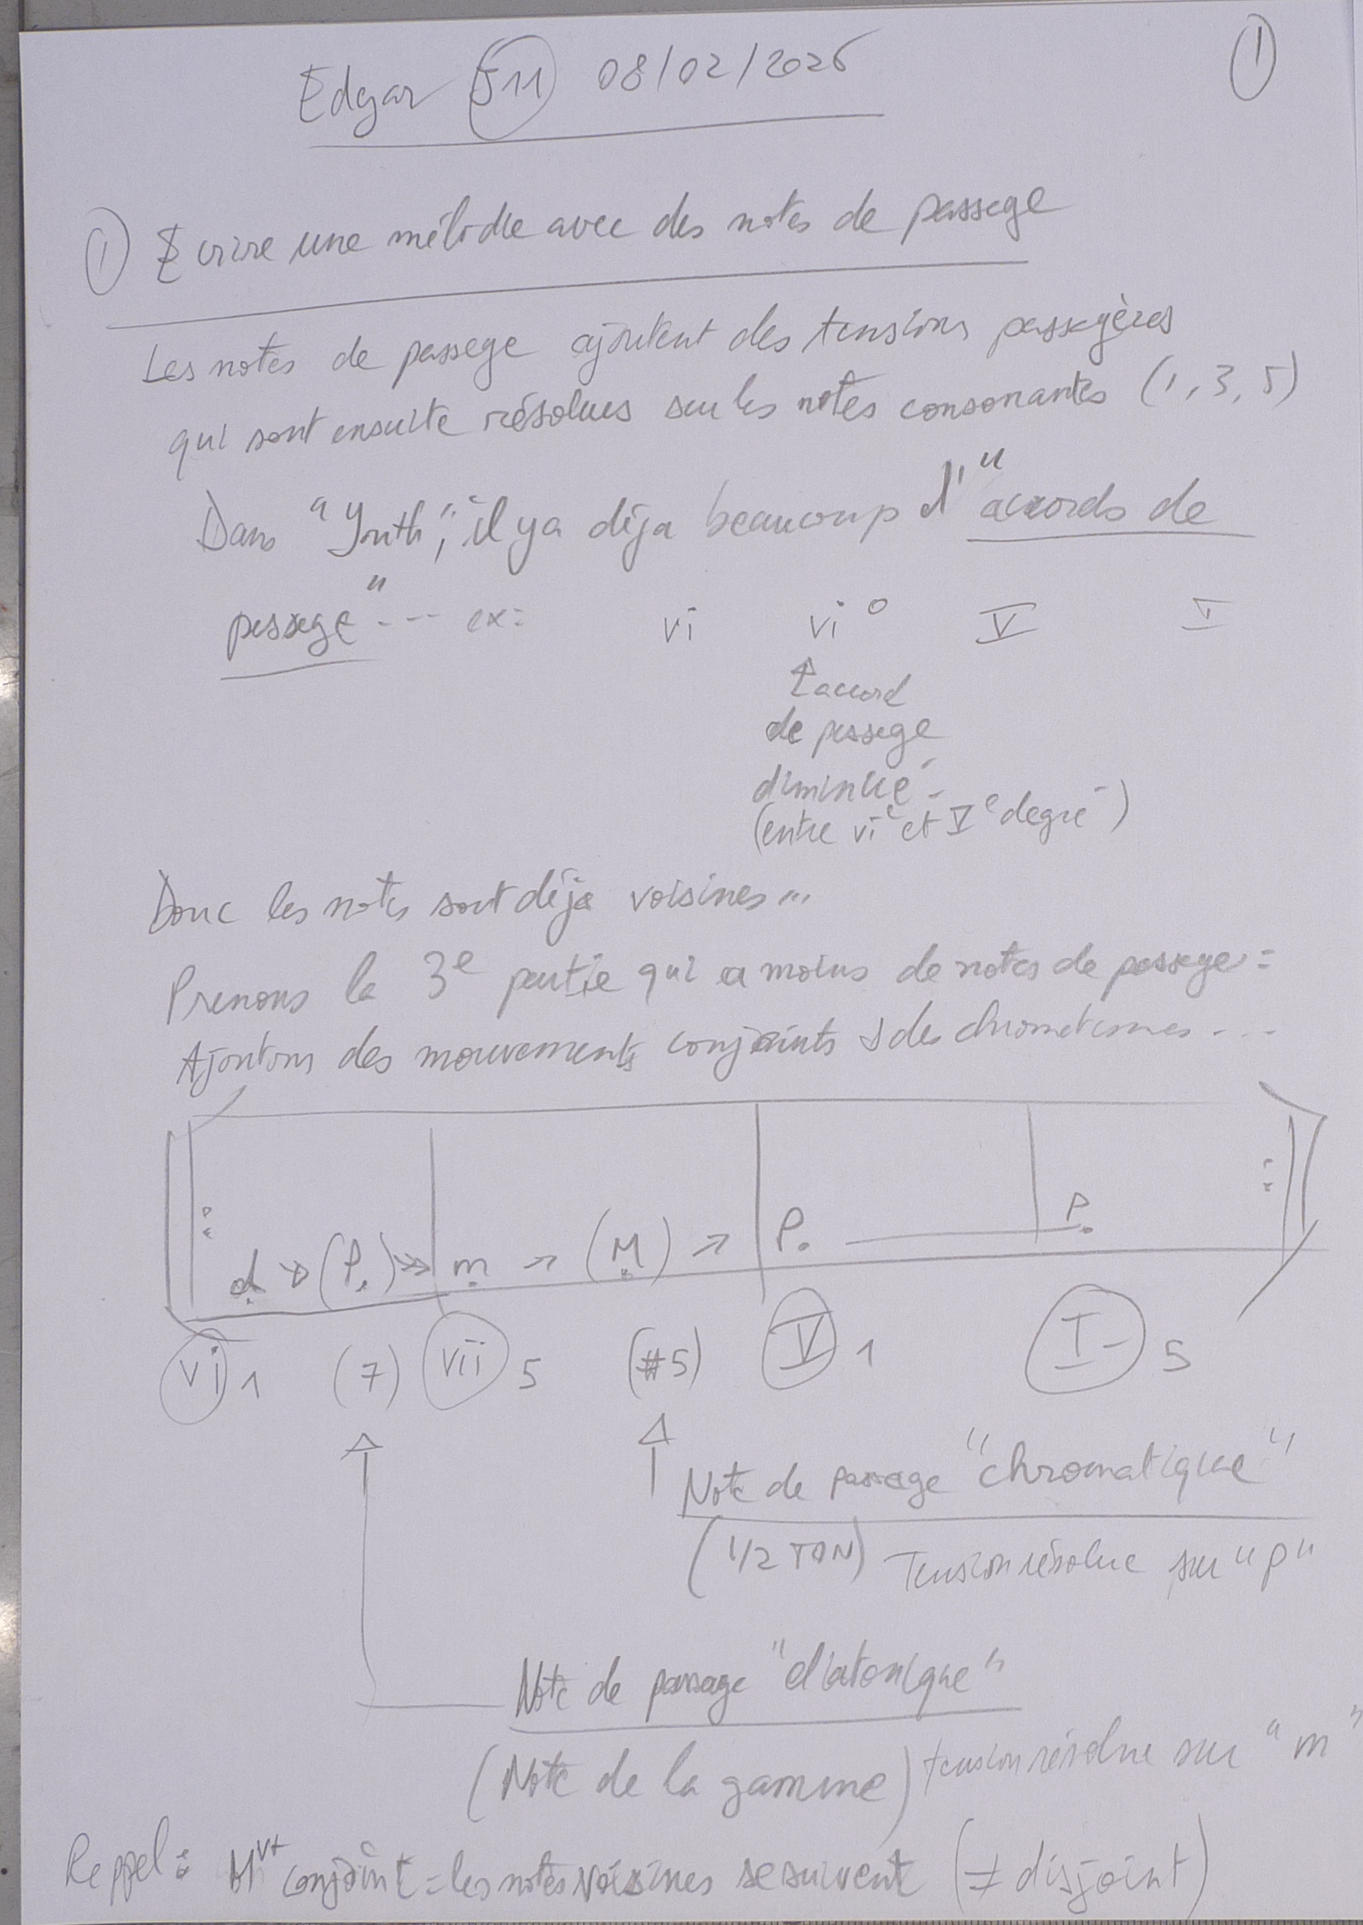 Edgar 511 08/02/2026
1
1 Ecrire une mélodie avec des notes de passage
Les notes de passage ajoutent des tensions passagères
qui sont ensuite résolues sur les notes consonantes (1, 3, 5)
Dans "Youth", il y a déja beaucoup d'"accords de
passage" --- ex: vi vi° V I
↑ accord
de passage
diminué
(entre viᵉ et Vᵉ degré)
Donc les notes sont déja voisines...
Prenons la 3ᵉ partie qui a moins de notes de passage:
Ajoutons des mouvements conjoints & des chromatismes...
m → (M) → P. P.
vi 1 (7) vii 5 (#5) V 1 I 5
Note de passage "chromatique"
(1/2 TON) Tension résolue sur "p"
Note de passage "diatonique"
(Note de la gamme) tension résolue sur "m"
Rappel: Mvt conjoint = les notes voisines se suivent (≠ disjoint)